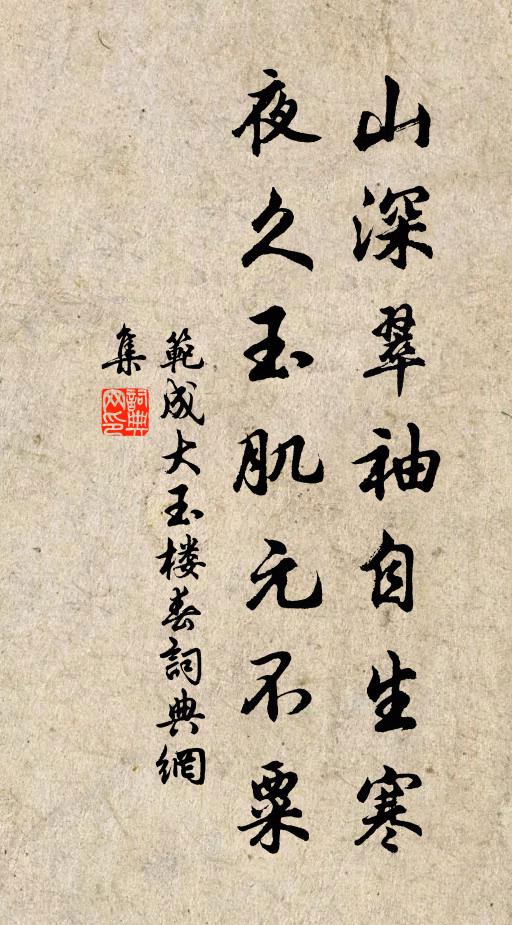 山深翠袖自生寒
夜久玉肌元不粟
範成大玉楼春詞典網
集
詞典網印